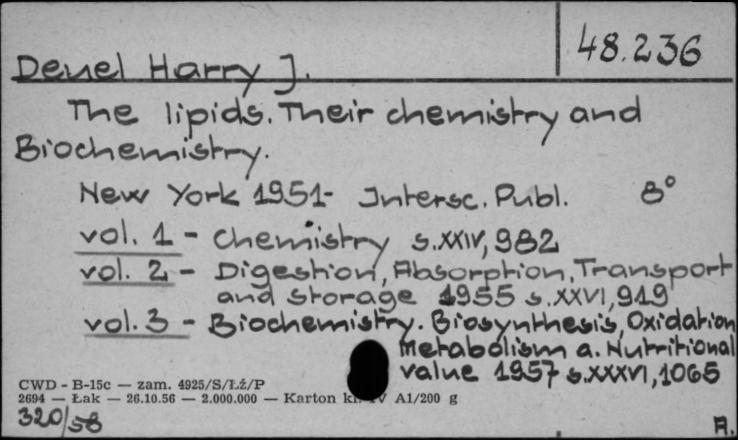 48.236
Deuel Harry J.
The lipids. Their chemistry and
Biochemistry.
New York 1951- Intersc. Publ. 8°
vol. 1 - Chemistry s.XXIV, 982
vol. 2 - Digestion, Absorption, Transport
and Storage 1955 s.XXVI, 919
vol. 3 - Biochemistry. Biosynthesis, Oxidation
Metabolism a. Nutritional
value 1957 s.XXXVI, 1065
CWD - B-15c — zam. 4925/S/Łź/P
2694 — Łak — 26.10.56 — 2.000.000 — Karton kl. IV A1/200 g
320/58
A.